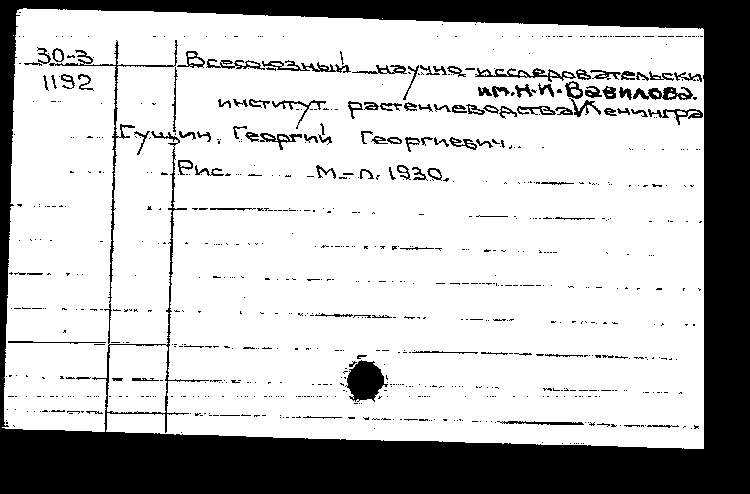 30-3 Всесоюзный научно-исследовательски
1192 им. Н. И. Вавилова.
институт растениеводства Ленингра
Гущин, Георгий Георгиевич.
Рис. М.-Л. 1930.